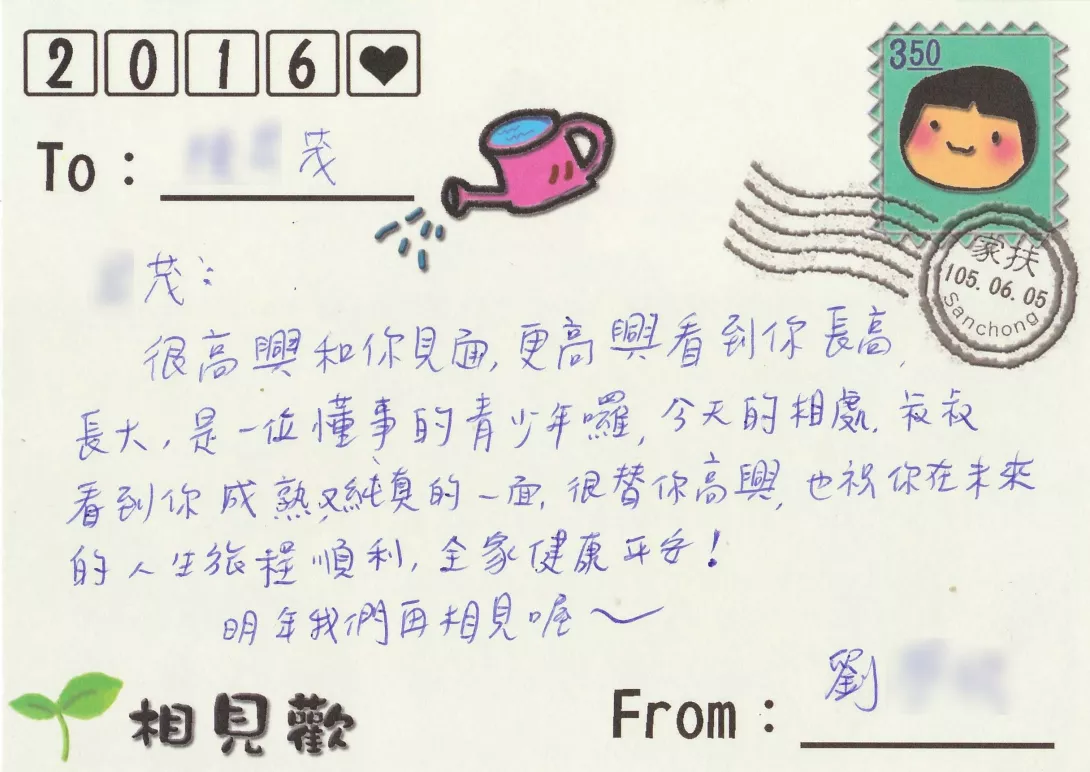 2016♥
350
To： 茂
家扶
105.06.05
Sanchong
茂：
很高興和你見面, 更高興看到你長高,
長大, 是一位懂事的青少年囉, 今天的相處, 叔叔
看到你成熟又純真的一面, 很替你高興, 也祝你在未來
的人生旅程順利, 全家健康平安！
明年我們再相見喔～
相見歡
From： 劉